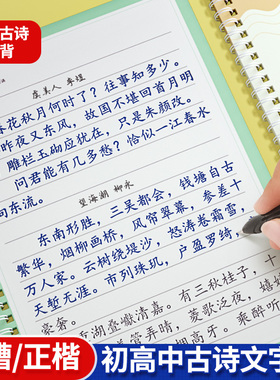 古诗
背
虞美人 李煜
春花秋月何时了？往事知多少。
昨夜又东风，故国不堪回首月明
雕栏玉砌应犹在，只是朱颜改。
问君能有几多愁？恰似一江春水
向东流。
望海潮 柳永
东南形胜，三吴都会，钱塘自古
繁华，烟柳画桥，风帘翠幕，参差十
万人家。云树绕堤沙，怒涛卷霜雪，
天堑无涯。市列珠玑，户盈罗绮，
豪奢。
有三秋桂子，十
清嘉。
弄晴，菱歌泛夜，嬉
高牙。乘醉听
槽/正楷
初高中古诗文字